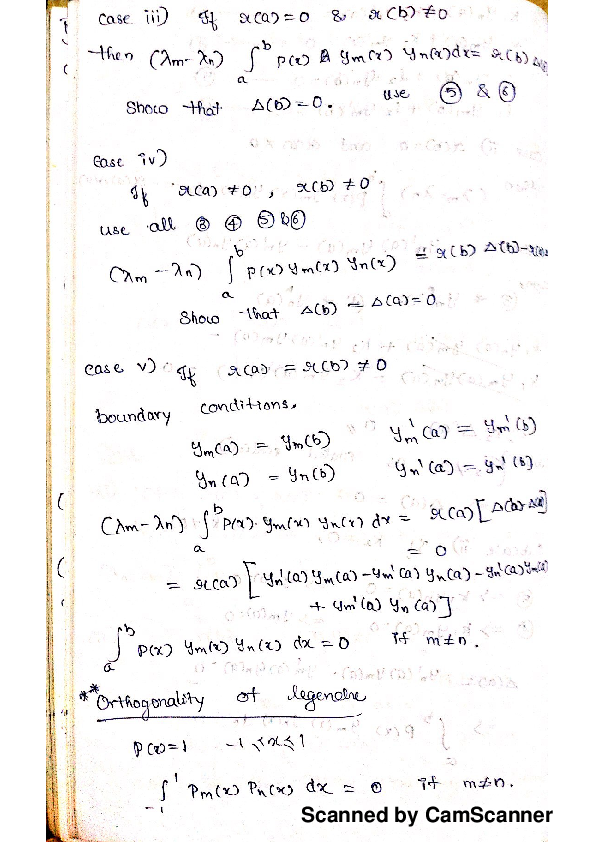 case iii) If r(a) = 0 & r(b) ≠ 0
then (λm - λn) ∫_a^b P(x) ym(x) yn(x) dx = r(b)
use ⑤ & ⑥
Show that Δ(b) = 0.
case iv)
If r(a) ≠ 0 , r(b) ≠ 0
use all ③ ④ ⑤ & ⑥
(λm - λn) ∫_a^b P(x) ym(x) yn(x) = r(b) Δ(b) - r(a)
Show that Δ(b) - Δ(a) = 0
case v) If r(a) = r(b) ≠ 0
boundary conditions,
ym(a) = ym(b) ym'(a) = ym'(b)
yn(a) = yn(b) yn'(a) = yn'(b)
(λm - λn) ∫_a^b P(x) ym(x) yn(x) dx = r(a) [Δ(b) - Δ(a)]
= 0
= r(a) [yn'(a) ym(a) - ym'(a) yn(a) - yn'(a) ym(a)
+ ym'(a) yn(a)]
∫_a^b P(x) ym(x) yn(x) dx = 0 if m ≠ n.
** Orthogonality of legendre
P(x) = 1 -1 ≤ x ≤ 1
∫_-1^1 Pm(x) Pn(x) dx = 0 if m ≠ n.
Scanned by CamScanner